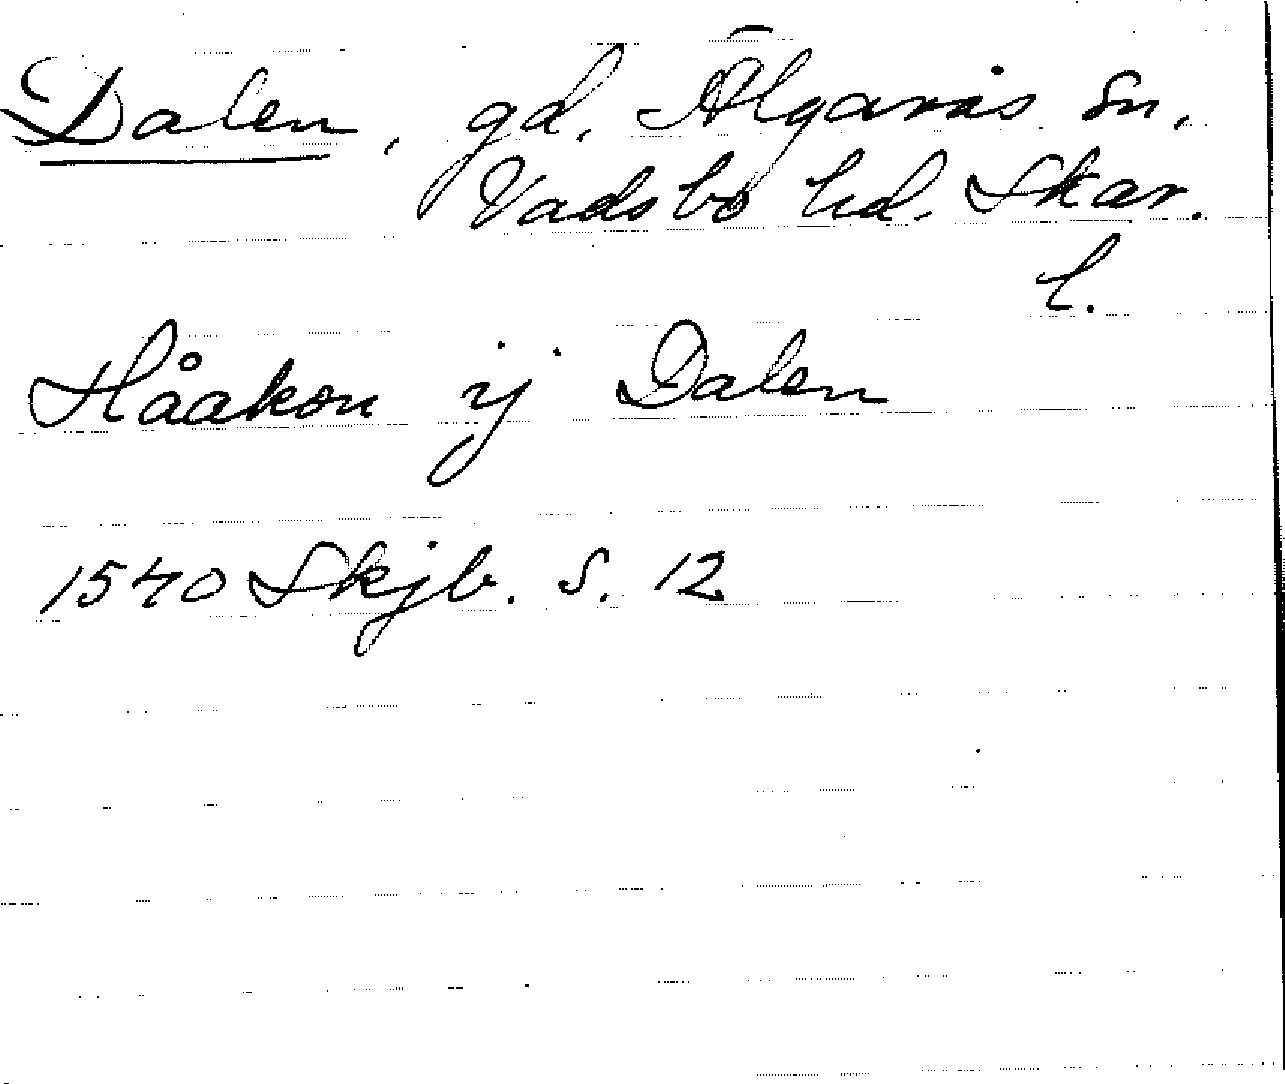 Dalen, gd, Älgarås sn,
Vadsbo hd. Skar.
l.
Håakon ij Dalen
1540 Skjb. S. 12